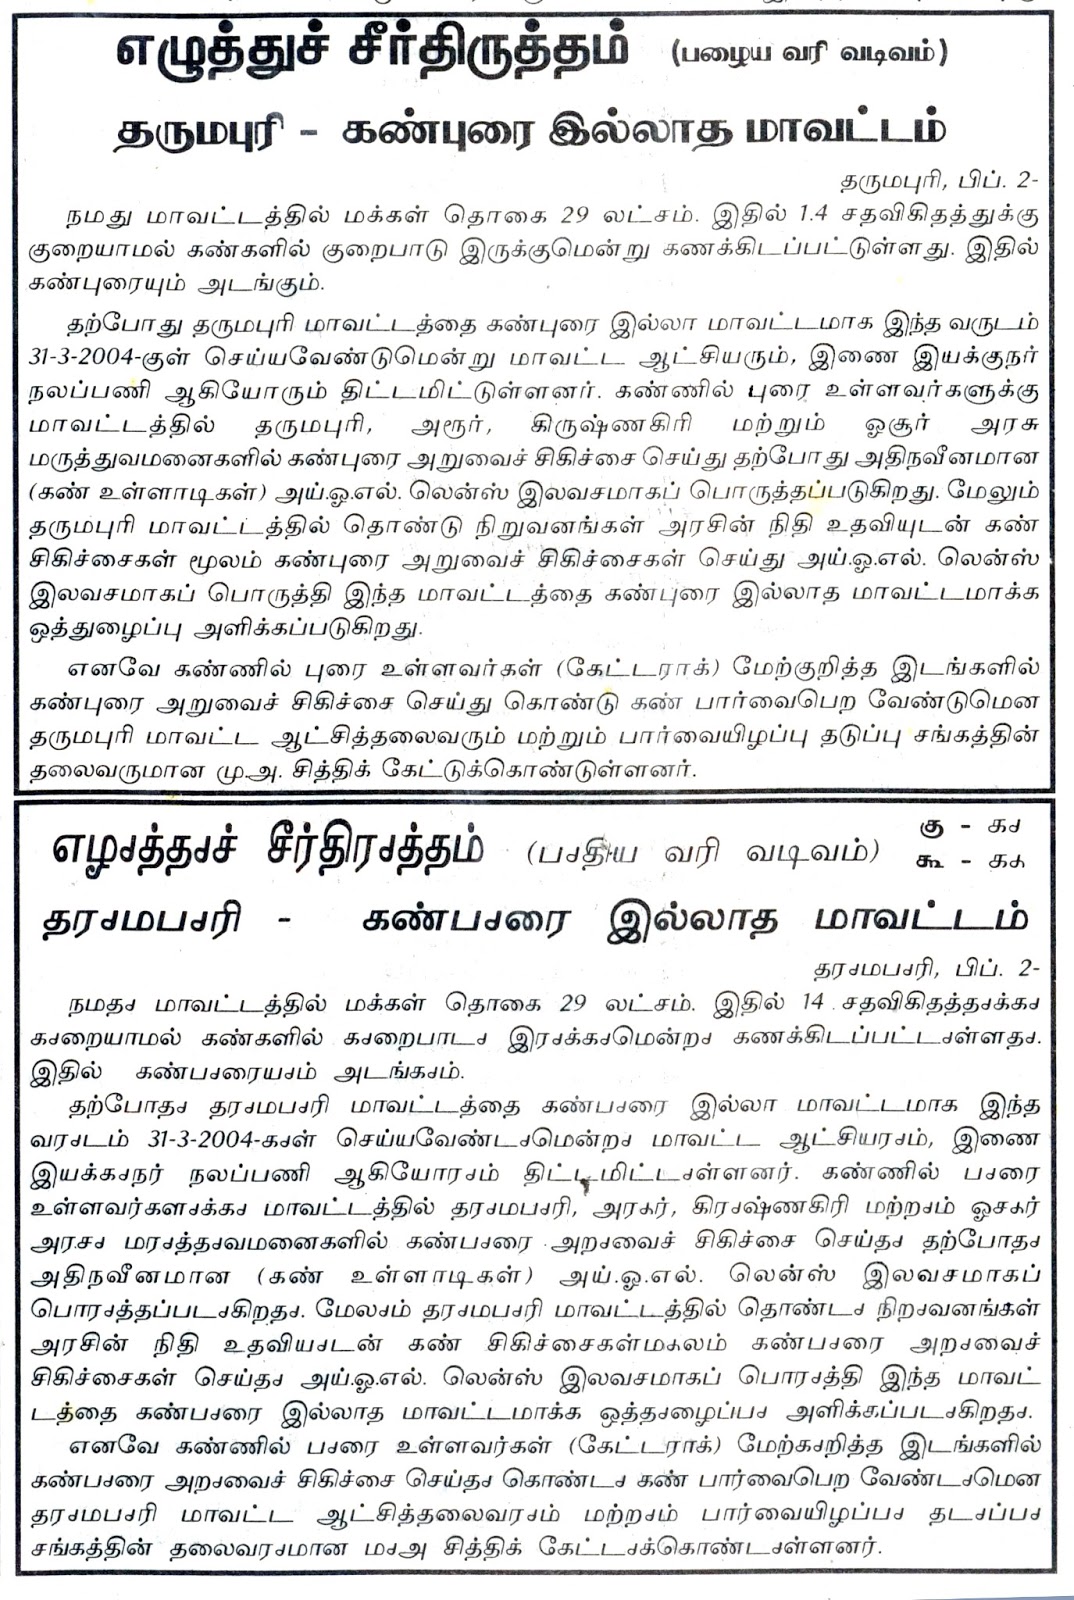 எழுத்துச் சீர்திருத்தம் (பழைய வரி வடிவம்)
தருமபுரி - கண்புரை இல்லாத மாவட்டம்
தருமபுரி, பிப். 2-
நமது மாவட்டத்தில் மக்கள் தொகை 29 லட்சம். இதில் 1.4 சதவிகிதத்துக்கு
குறையாமல் கண்களில் குறைபாடு இருக்குமென்று கணக்கிடப்பட்டுள்ளது. இதில்
கண்புரையும் அடங்கும்.
தற்போது தருமபுரி மாவட்டத்தை கண்புரை இல்லா மாவட்டமாக இந்த வருடம்
31-3-2004-குள் செய்யவேண்டுமென்று மாவட்ட ஆட்சியரும், இணை இயக்குநர்
நலப்பணி ஆகியோரும் திட்டமிட்டுள்ளனர். கண்ணில் புரை உள்ளவர்களுக்கு
மாவட்டத்தில் தருமபுரி, அரூர், கிருஷ்ணகிரி மற்றும் ஓசூர் அரசு
மருத்துவமனைகளில் கண்புரை அறுவைச் சிகிச்சை செய்து தற்போது அதிநவீனமான
(கண் உள்ளாடிகள்) அய்.ஓ.எல். லென்ஸ் இலவசமாகப் பொருத்தப்படுகிறது. மேலும்
தருமபுரி மாவட்டத்தில் தொண்டு நிறுவனங்கள் அரசின் நிதி உதவியுடன் கண்
சிகிச்சைகள் மூலம் கண்புரை அறுவைச் சிகிச்சைகள் செய்து அய்.ஓ.எல். லென்ஸ்
இலவசமாகப் பொருத்தி இந்த மாவட்டத்தை கண்புரை இல்லாத மாவட்டமாக்க
ஒத்துழைப்பு அளிக்கப்படுகிறது.
எனவே கண்ணில் புரை உள்ளவர்கள் (கேட்டராக்) மேற்குறித்த இடங்களில்
கண்புரை அறுவைச் சிகிச்சை செய்து கொண்டு கண் பார்வைபெற வேண்டுமென
தருமபுரி மாவட்ட ஆட்சித்தலைவரும் மற்றும் பார்வையிழப்பு தடுப்பு சங்கத்தின்
தலைவருமான மு.அ. சித்திக் கேட்டுக்கொண்டுள்ளனர்.
எழுத்துச் சீர்திருத்தம் (புதிய வரி வடிவம்)
கு - கு
கூ - கூ
தருமபுரி - கண்புரை இல்லாத மாவட்டம்
தருமபுரி, பிப். 2-
நமது மாவட்டத்தில் மக்கள் தொகை 29 லட்சம். இதில் 14 சதவிகிதத்துக்கு
குறையாமல் கண்களில் குறைபாடு இருக்குமென்று கணக்கிடப்பட்டுள்ளது.
இதில் கண்புரையும் அடங்கும்.
தற்போது தருமபுரி மாவட்டத்தை கண்புரை இல்லா மாவட்டமாக இந்த
வருடம் 31-3-2004-குள் செய்யவேண்டுமென்று மாவட்ட ஆட்சியரும், இணை
இயக்குநர் நலப்பணி ஆகியோரும் திட்டமிட்டுள்ளனர். கண்ணில் புரை
உள்ளவர்களுக்கு மாவட்டத்தில் தருமபுரி, அரூர், கிருஷ்ணகிரி மற்றும் ஓசூர்
அரசு மருத்துவமனைகளில் கண்புரை அறுவைச் சிகிச்சை செய்து தற்போது
அதிநவீனமான (கண் உள்ளாடிகள்) அய்.ஓ.எல். லென்ஸ் இலவசமாகப்
பொருத்தப்படுகிறது. மேலும் தருமபுரி மாவட்டத்தில் தொண்டு நிறுவனங்கள்
அரசின் நிதி உதவியுடன் கண் சிகிச்சைகள்மூலம் கண்புரை அறுவைச்
சிகிச்சைகள் செய்து அய்.ஓ.எல். லென்ஸ் இலவசமாகப் பொருத்தி இந்த மாவட்
டத்தை கண்புரை இல்லாத மாவட்டமாக்க ஒத்துழைப்பு அளிக்கப்படுகிறது.
எனவே கண்ணில் புரை உள்ளவர்கள் (கேட்டராக்) மேற்குறித்த இடங்களில்
கண்புரை அறுவைச் சிகிச்சை செய்து கொண்டு கண் பார்வைபெற வேண்டுமென
தருமபுரி மாவட்ட ஆட்சித்தலைவரும் மற்றும் பார்வையிழப்பு தடுப்பு
சங்கத்தின் தலைவருமான முஅ சித்திக் கேட்டுக்கொண்டுள்ளனர்.